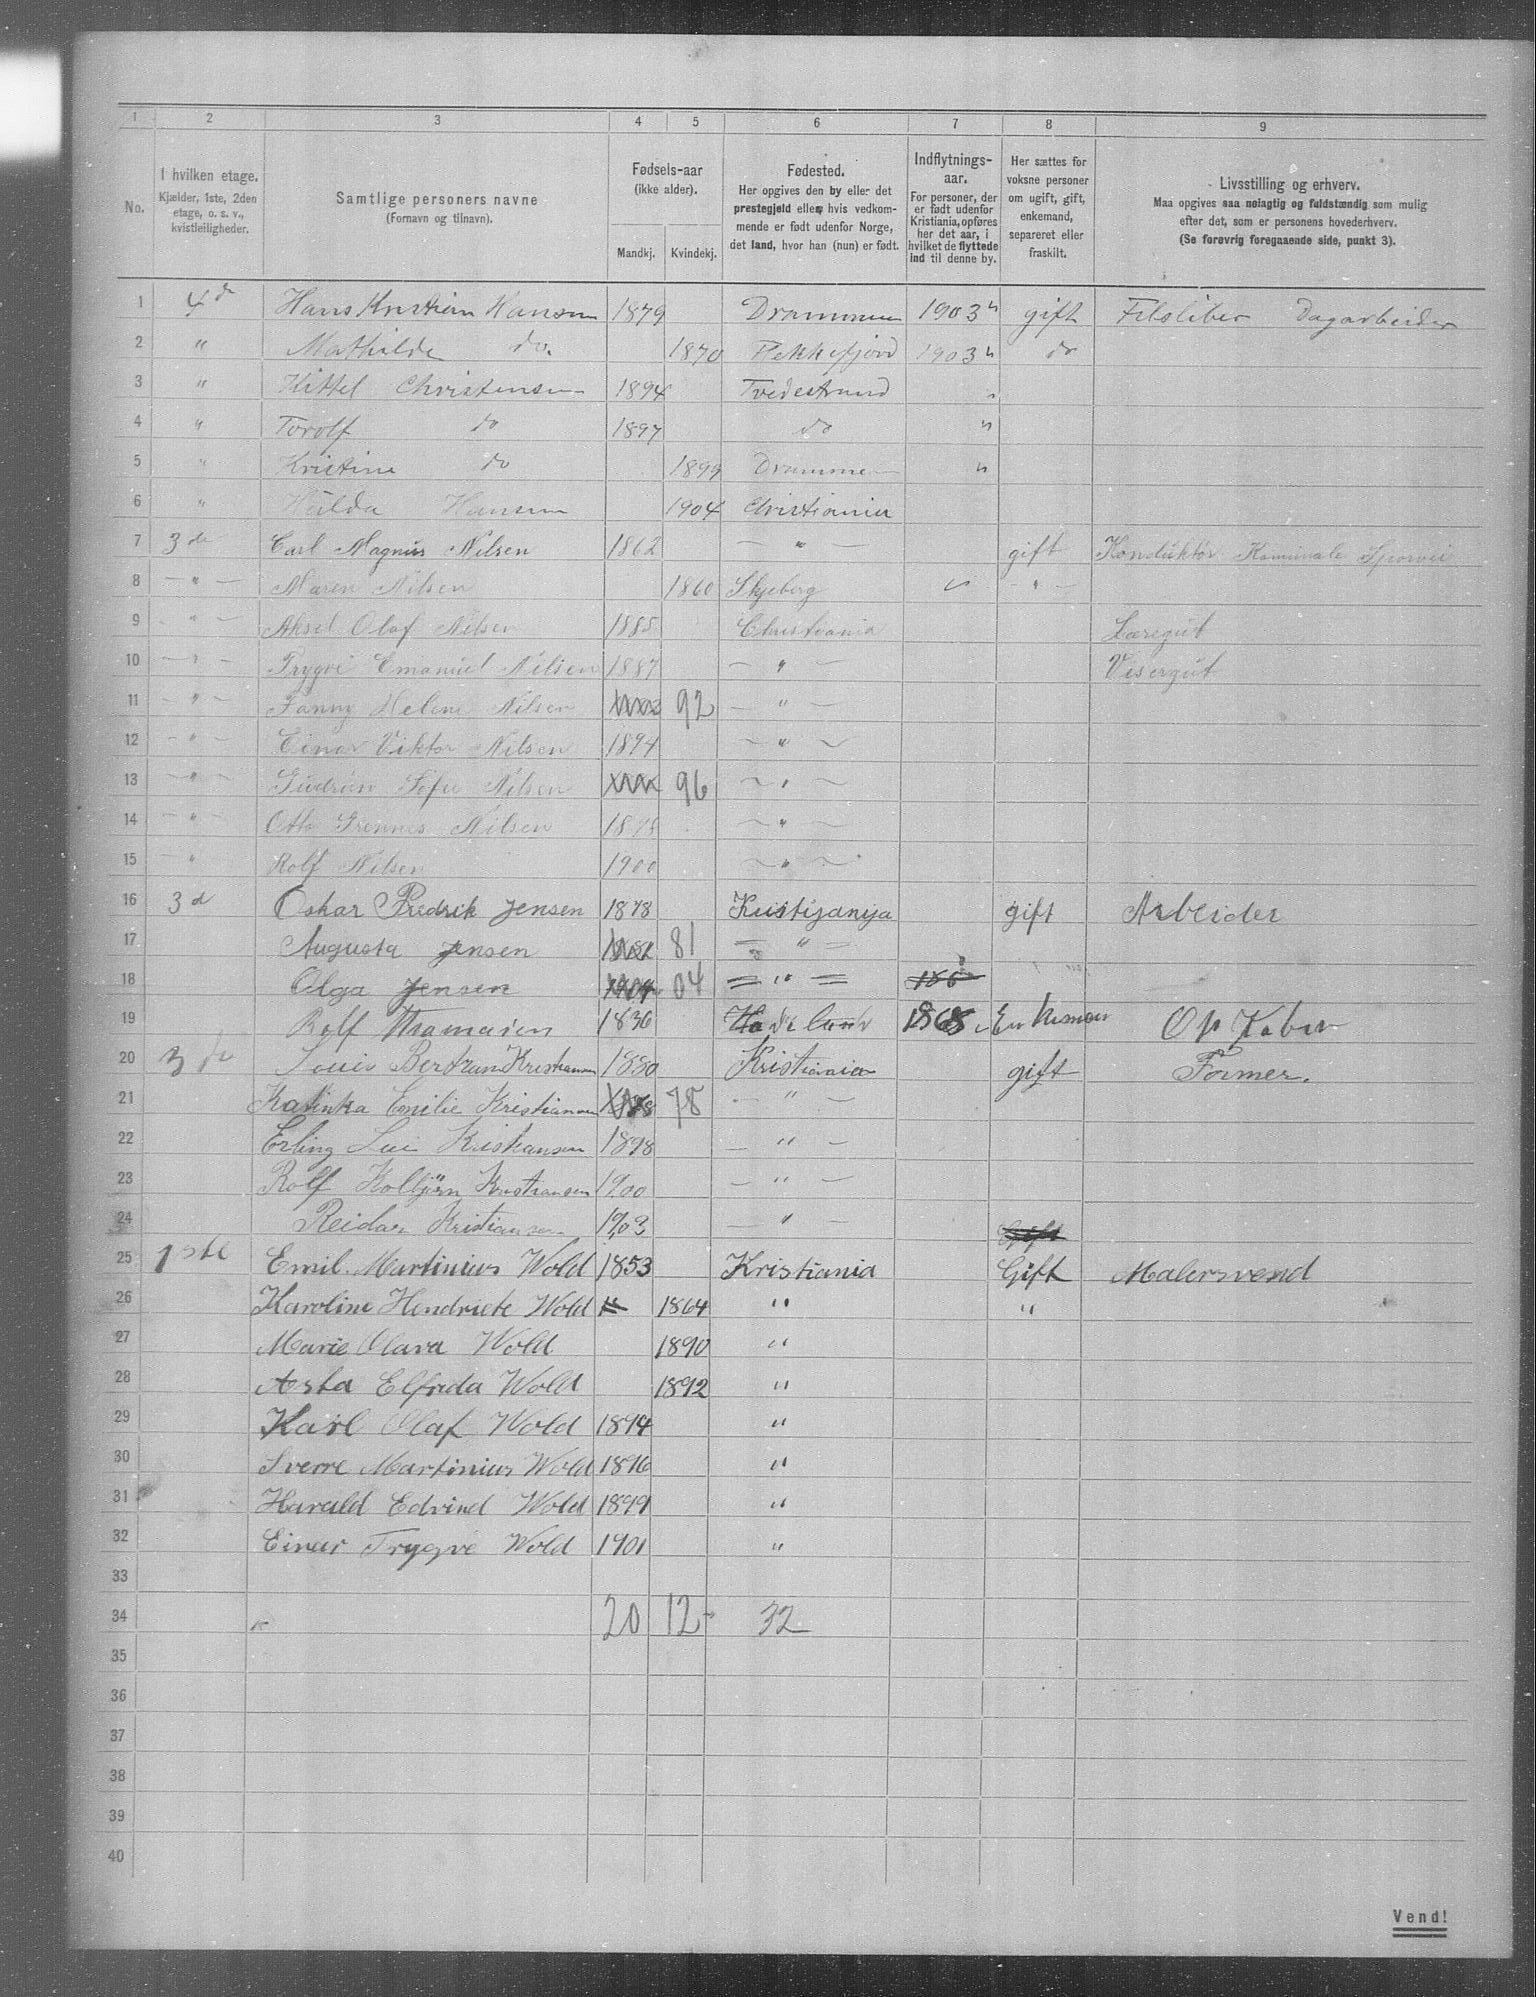 1 2 3 4 5 6 7 8 9
No.
I hvilken etage.
Kjælder, 1ste, 2den
etage, o. s. v.,
kvistleiligheder.
Samtlige personers navne
(Fornavn og tilnavn).
Fødsels-aar
(ikke alder).
Mandkj. Kvindekj.
Fødested.
Her opgives den by eller det
prestegjeld eller, hvis vedkom-
mende er født udenfor Norge,
det land, hvor han (hun) er født.
Indflytnings-
aar.
For personer, der
er født udenfor
Kristiania, opføres
her det aar, i
hvilket de flyttede
ind til denne by.
Her sættes for
voksne personer
om ugift, gift,
enkemand,
separeret eller
fraskilt.
Livsstilling og erhverv.
Maa opgives saa nøiagtig og fuldstændig som mulig
efter det, som er personens hovederhverv.
(Se forøvrig foregaaende side, punkt 3).
1 4 d Hans Kristian Hansen 1879 Drammen 1903 " gift Filsliber Dagarbeider
2 " Mathilde do. 1870 Flekkefjord 1903 " do
3 " Kittel Christensen 1894 Tvedestrand "
4 " Torolf do 1897 do "
5 " Kristine do 1899 Drammen "
6 " Hilda Hansen 1904 Christiania
7 3 de Carl Magnus Nilsen 1862 — " — gift Konduktør Komunale Sporvei
8 — " — Maren Nilsen 1860 Skjeberg " — " —
9 — " — Aksel Olaf Nilsen 1885 Christiania Læregut
10 — " — Trygve Emanuel Nilsen 1887 — " — Visergut
11 — " — Fanny Helene Nilsen 92 — " —
12 — " — Einar Viktor Nilsen 1894 — " —
13 — " — Gudrun Sofie Nilsen 96 — " —
14 — " — Otto Nilsen 1898 — " —
15 — " Rolf Nilsen 1900 — " —
16 3 d Oskar Fredrik Jensen 1878 Kristijanija gift Arbeider
17 Augusta Jensen 81 — " —
18 Olga Jensen 1904 04 — " —
19 Rolf 1836 Hadeland 1868 Enkeman
20 3 de Louis Bertram Kristiansen 1880 Kristiania gift Former.
21 Katinka Emilie Kristiansen 1878 78 — " —
22 Erling Lui Kristiansen 1898 — " —
23 Rolf Kolbjørn Kristiansen 1900 — " —
24 Reidar Kristiansen 1903 — " — Gift
25 1ste Emil Martinius Wold 1853 Kristiania Gift Malersvend
26 Karoline Hendriete Wold 1864 " "
27 Marie Olava Wold 1890 "
28 Asta Elfrida Wold 1892 "
29 Karl Olaf Wold 1894 "
30 Sverre Martinius Wold 1896 "
31 Harald Edvind Wold 1899 "
32 Einar Trygve Wold 1901 "
33
34 20 12 32
35
36
37
38
39
40
Vend!